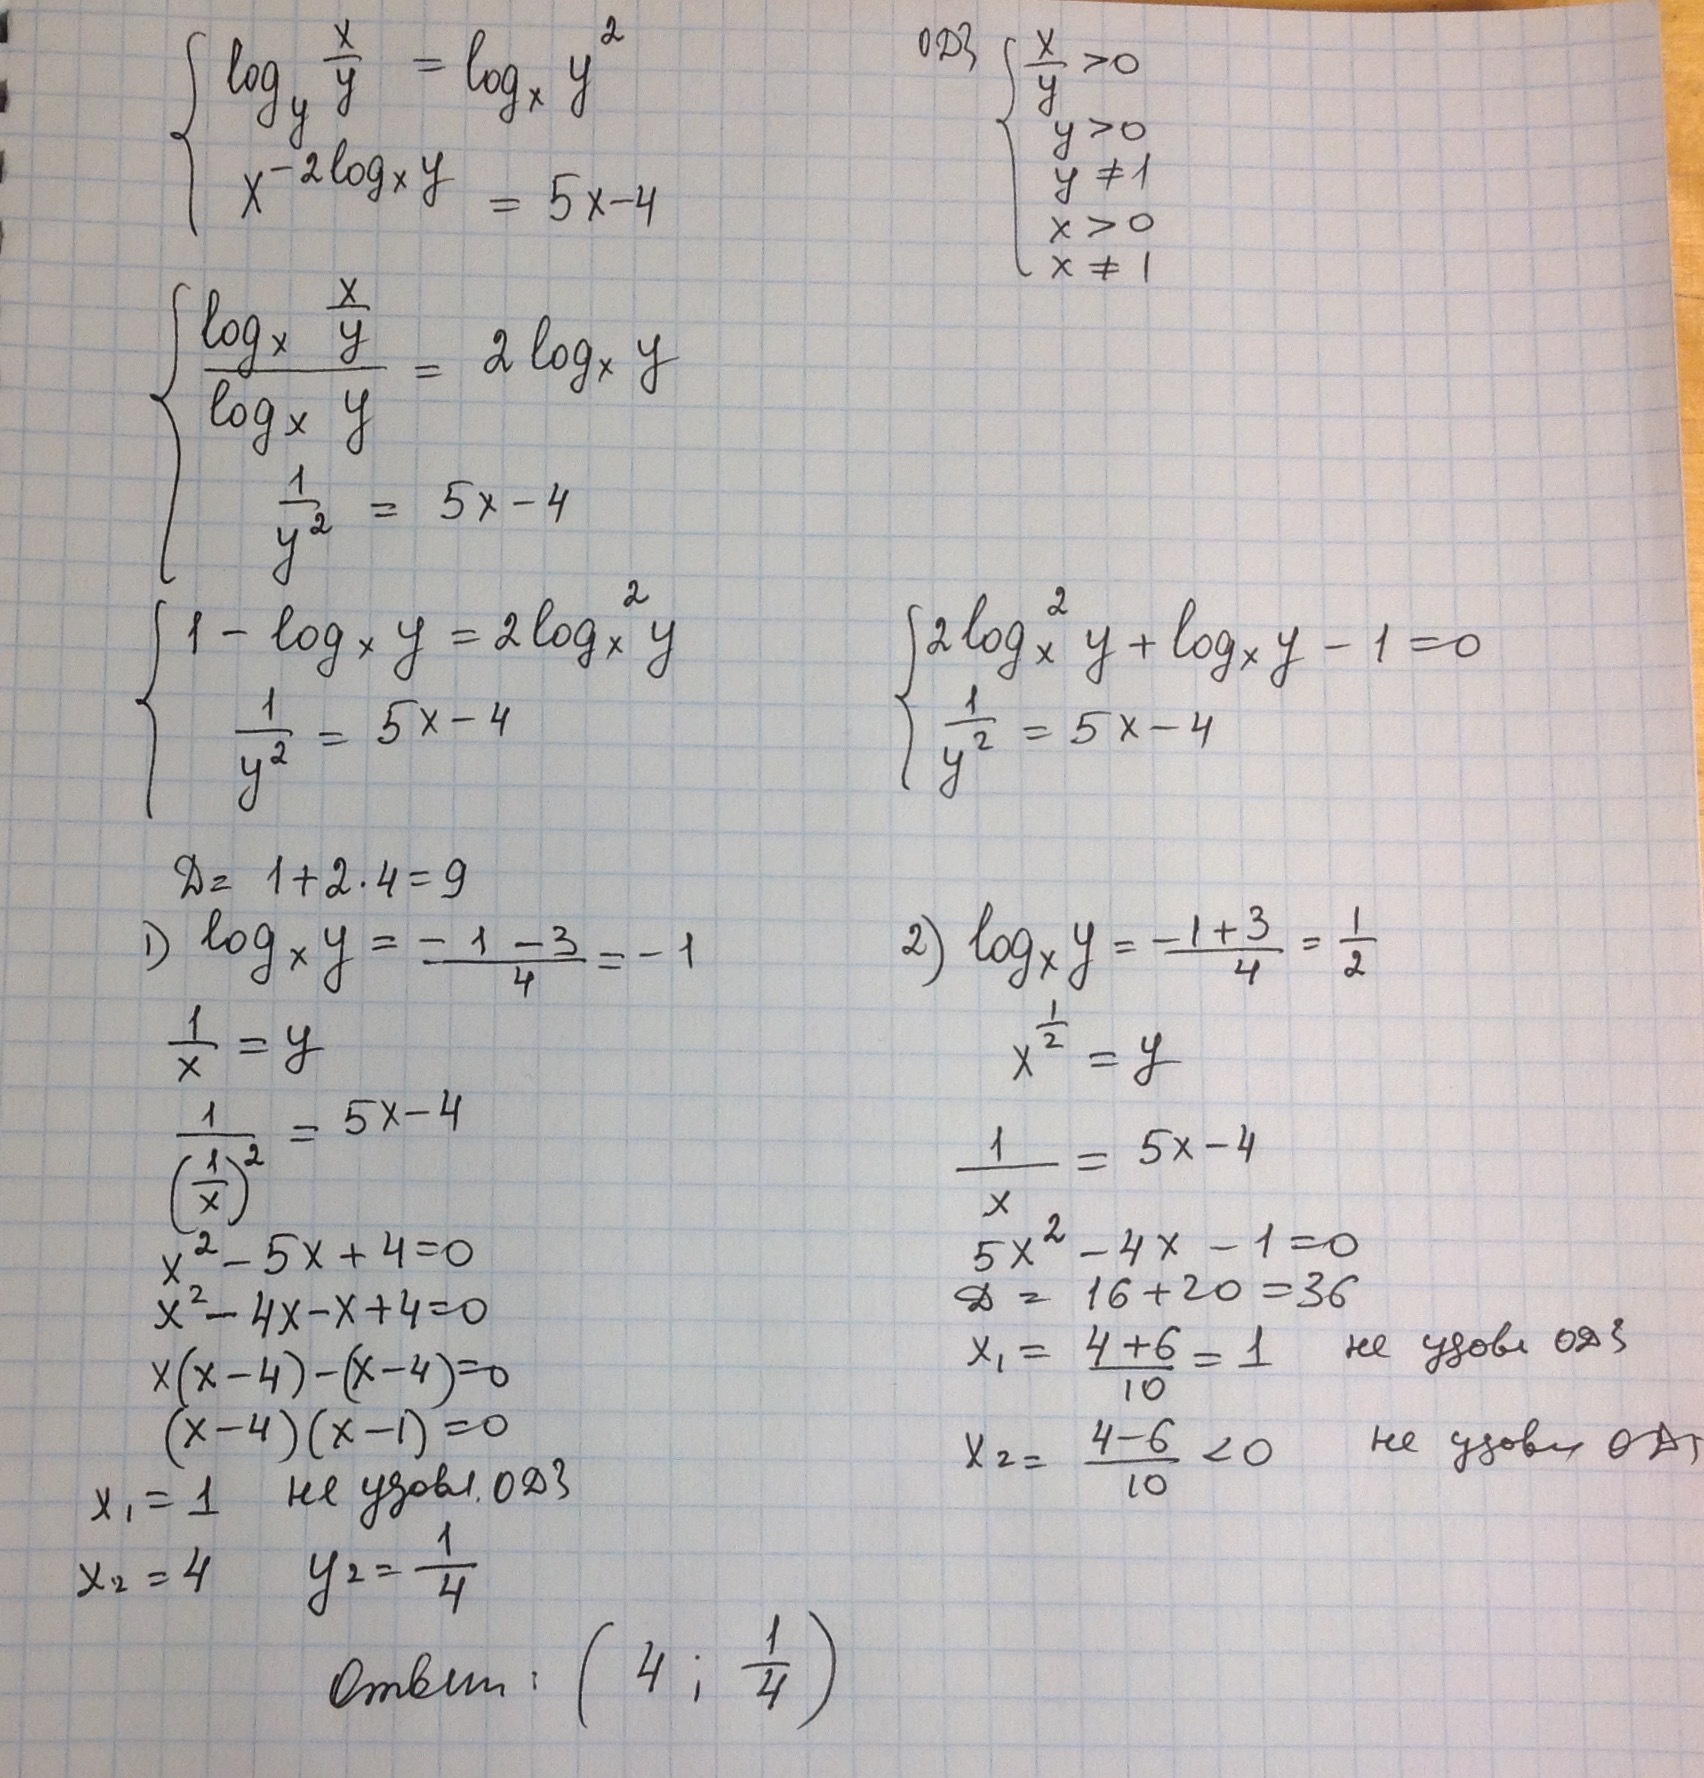 log_y x/y = log_x y²
x^(-2log_x y) = 5x-4
ОДЗ x/y >0
y>0
y≠1
x>0
x≠1
(log_x x/y)/(log_x y) = 2log_x y
1/y² = 5x-4
1-log_x y = 2log_x² y
1/y² = 5x-4
2log_x² y + log_x y - 1=0
1/y² = 5x-4
D= 1+2·4=9
1) log_x y = (-1-3)/4 = -1
1/x = y
1/(1/x)² = 5x-4
x²-5x+4=0
x²-4x-x+4=0
x(x-4)-(x-4)=0
(x-4)(x-1)=0
x₁=1 не удовл. ОДЗ
x₂=4 y₂= 1/4
2) log_x y = (-1+3)/4 = 1/2
x^(1/2) = y
1/x = 5x-4
5x²-4x-1=0
D = 16+20=36
x₁= (4+6)/10 = 1 не удовл ОДЗ
x₂= (4-6)/10 <0 не удовл ОДЗ
Ответ: (4; 1/4)